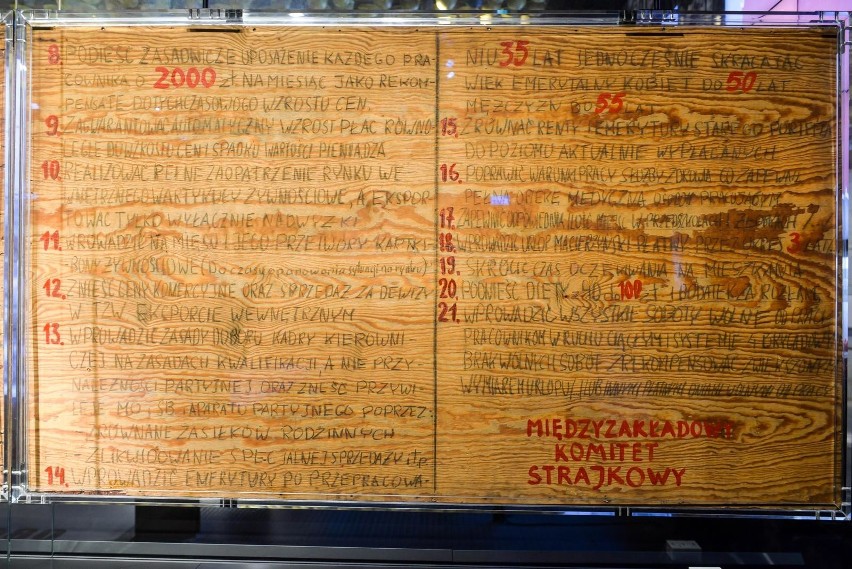 8. PODIEŚĆ ZASADNICZE UPOSAŻENIE KAŻDEGO PRA-
COWNIKA O 2000 ZŁ NA MIESIĄC JAKO REKOM-
PENSATĘ DOTYCHCZASOWEGO WZROSTU CEN.
9. ZAGWARANTOWAĆ AUTOMATYCZNY WZROST PŁAC RÓWNO-
LEGLE DO WZROSTU CEN I SPADKU WARTOŚCI PIENIĄDZA
10. REALIZOWAĆ PEŁNE ZAOPATRZENIE RYNKU WE-
WNĘTRZNEGO W ARTYKUŁY ŻYWNOŚCIOWE, A EKSPOR-
TOWAĆ TYLKO WYŁĄCZNIE NADWYŻKI
11. WROWADZIĆ NA MIĘSO I JEGO PRZETWORY KARTKI-
BONY ŻYWNOŚCIOWE (do czasu opanowania sytuacji na rynku)
12. ZNIEŚĆ CENY KOMERCYJNE ORAZ SPRZEDAŻ ZA DEWIZY
W TZW. EKSPORCIE WEWNĘTRZNYM
13. WPROWADZIĆ ZASADY DOBORU KADRY KIEROWNI-
CZEJ NA ZASADACH KWALIFIKACJI, A NIE PRZY-
NALEŻNOŚCI PARTYJNEJ ORAZ ZNIEŚĆ PRZYWI-
LEJE MO, SB i APARATU PARTYJNEGO POPRZEZ:
- ZRÓWNANIE ZASIŁKÓW RODZINNYCH
- ZLIKWIDOWANIE SPECJALNEJ SPRZEDAŻY itp
14. WPROWADZIĆ EMERYTURY PO PRZEPRACOWA-
NIU 35 LAT JEDNOCZEŚNIE SKRACAJĄC
WIEK EMERYTALNY KOBIET DO 50 LAT
MĘŻCZYZN DO 55 LAT
15. ZRÓWNAĆ RENTY I EMERYTURY STAREGO PORTFELA
DO POZIOMU AKTUALNIE WYPŁACANYCH
16. POPRAWIĆ WARUNKI PRACY SŁUŻBY ZDROWIA CO ZAPEWNI
PEŁNĄ OPIEKĘ MEDYCZNĄ OSOBOM PRACUJĄCYM
17. ZAPEWNIĆ ODPOWIEDNIĄ ILOŚĆ MIEJSC W PRZEDSZKOLACH I ŻŁOBKACH
18. WPROWADZIĆ URLOP MACIERZYŃSKI PŁATNY PRZEZ OKRES 3 LAT
19. SKRÓCIĆ CZAS OCZEKIWANIA NA MIESZKANIA
20. PODNIEŚĆ DIETY 40 100 ZŁ I DODATEK ZA ROZŁĄKĘ
21. WPROWADZIĆ WSZYSTKIE SOBOTY WOLNE OD PRACY
PRACOWNIKOM W RUCHU CIĄGŁYM I SYSTEMIE BRYGADOWYM
BRAK WOLNYCH SOBÓT ZREKOMPENSOWAĆ ZWIĘKSZONYM
WYMIAREM URLOPU LUB INNYMI PŁATNYMI DNIAMI WOLNYMI OD PRACY
MIĘDZYZAKŁADOWY
KOMITET
STRAJKOWY